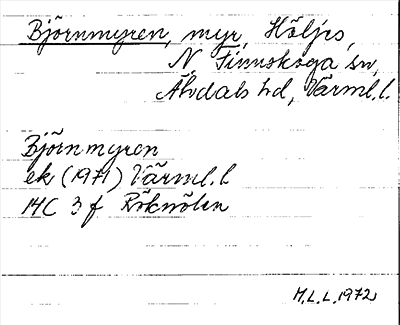 Björnmyren, myr, Höljes,
N. Finnskoga sn,
Älvdals hd, Värml. l.
Björnmyren
ek (1971) Värml. l
14C 3f Röknölen
M.L.L. 1972